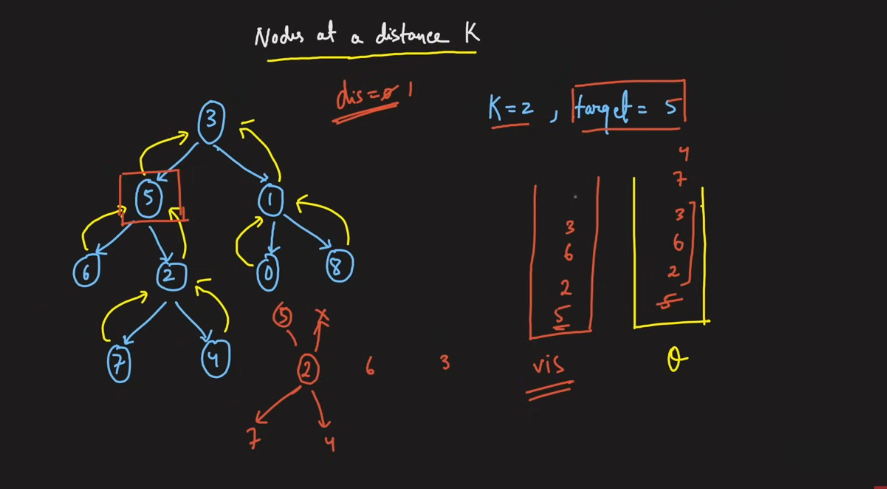 Nodes at a distance K
dis=0 1
K=2 , target= 5
3
5 1
6 2 0 8
7 4
5 x
2 6 3
7 4
3
6
2
5
vis
4
7
3
6
2
5
Q